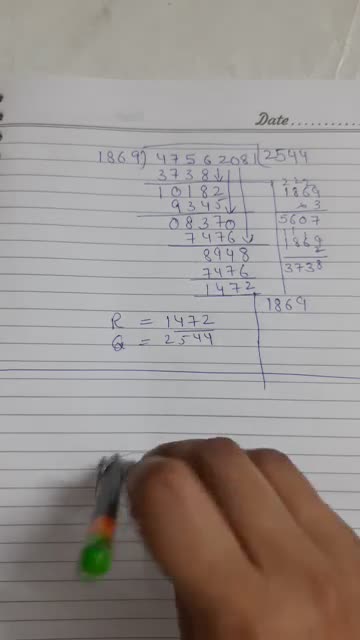 Date
1869) 47562081 (2544
3738↓
10182
9345
08370
7476
8948
7476
1472
212
1869
× 3
5607
111
1869
2
3738
1869
R = 1472
Q = 2544